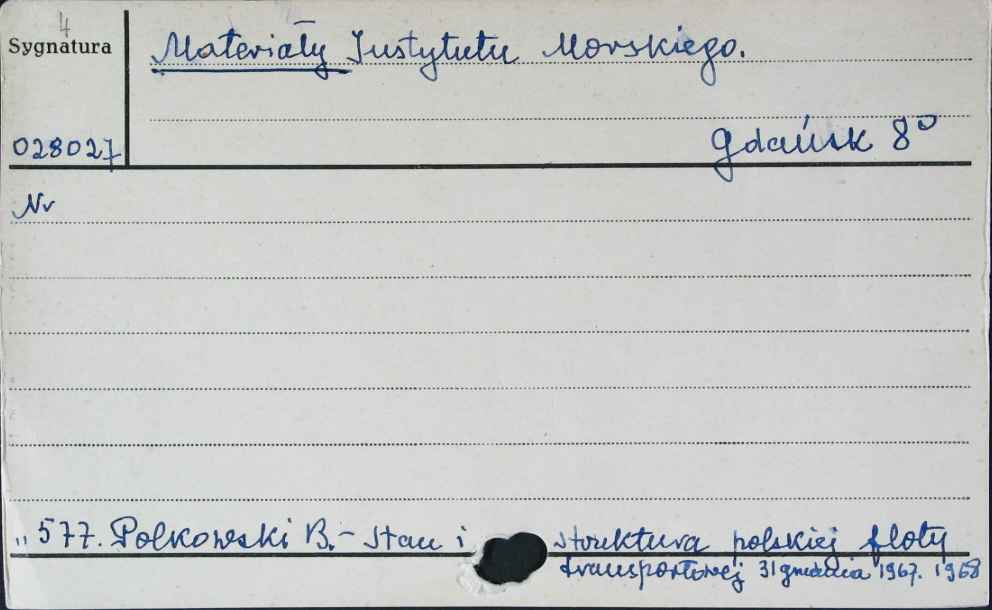 4
Sygnatura
Materiały Instytutu Morskiego.
028027
Gdańsk 8°
Nr
„ 577. Polkowski B. - Stan i struktura polskiej floty
transportowej 31 grudnia 1967. 1968